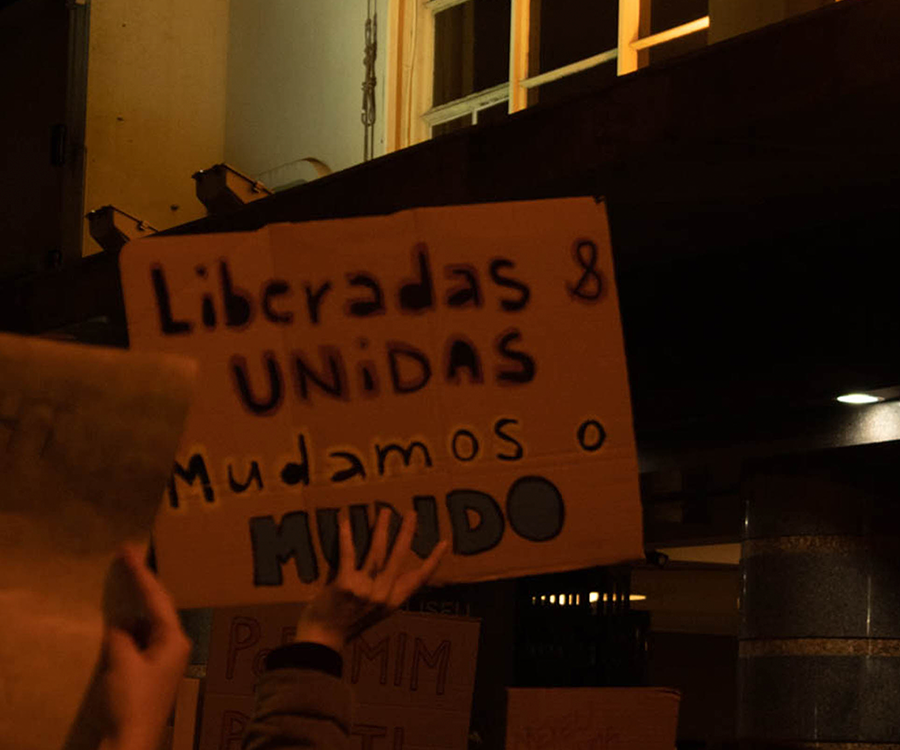 Liberadas &
UNiDAS
Mudamos o
MUNDO
MIM